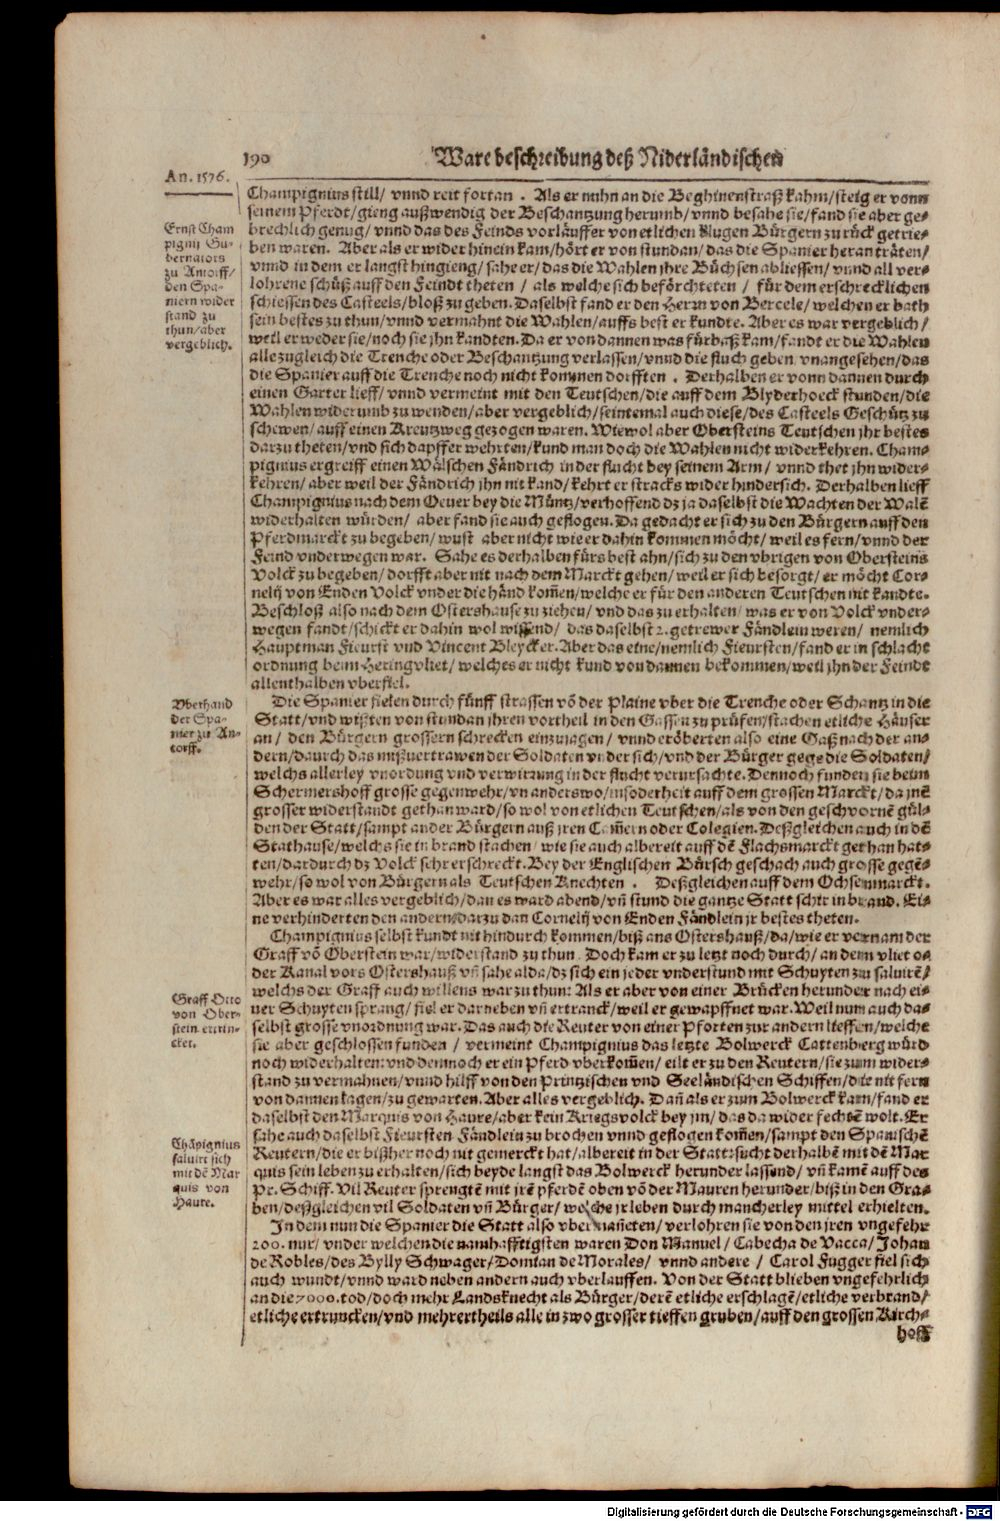 190 Ware beschreibung deß Niderländischen
An. 1576.
Champignius still/ vnnd reit fortan . Als er nuhn an die Beghinenstraß kahm/steig er vonn
seinem Pferdt/gieng außwendig der Beschantzung herumb/vnnd besahe sie/fand sie aber ge-
brechlich genug/vnnd das des Feinds vorläuffer von etlichen klugen Bürgern zu rück getrie-
ben waren. Aber als er wider hinein kam/hört er von stundan/das die Spanier heran träten/
vnnd in dem er langst hingieng/sahe er/das die Wahlen ihre Büchsen abliessen/vnnd all ver-
lohrene schüß auff den Feindt theten / als welche sich beförchteten / für dem erschrecklichen
schiessen des Casteels/bloß zu geben. Daselbst fand er den Herrn von Bercele/welchen er bath
sein bestes zu thun/vnnd vermahnt die Wahlen/auffs best er kundte. Aber es war vergeblich/
weil er weder sie/noch sie jhn kandten. Da er von dannen was fürbaß kam/fandt er die Wahlen
alle zugleich die Trenche oder Beschantzung verlassen/vnnd die fluch geben vnangesehen/das
die Spanier auff die Trenche noch nicht kommen dorfften . Derhalben er vonn dannen durch
einen Garten lieff/ vnnd vermeint mit den Teutschen/die auff dem Blyderhoeck stunden/die
Wahlen widerumb zu wenden/aber vergeblich/seintemal auch diese/des Casteels Geschütz zu
schewen/auff einen Kreutzweg gezogen waren. Wiewol aber Obersteins Teutschen jhr bestes
darzu theten/vnd sich dapffer wehrten/kund man doch die Wahlen nicht widerkehren. Cham-
pignius ergreiff einen Wälschen Fändrich in der flucht bey seinem Arm/ vnnd thet jhn wider-
kehren/aber weil der Fändrich jhn nit kand/kehrt er stracks wider hindersich. Derhalben lieff
Champignius nach dem Oeuer bey die Müntz/verhoffend dz ja daselbst die Wachten der Walē
widerhalten würden/ aber fand sie auch geflogen. Da gedacht er sich zu den Bürgern auff den
Pferdmarckt zu begeben/wust aber nicht wie er dahin kommen möcht/weil es fern/vnnd der
Feind vnderwegen war. Sahe es derhalben fürs best ahn/sich zu den vbrigen von Obersteins
Volck zu begeben/dorfft aber nit nach dem Marckt gehen/weil er sich besorgt/er möcht Cor-
nelij von Enden Volck vnder die händ kom̄en/welche er für den anderen Teutschen nit kandte.
Beschloß also nach dem Ostershause zu ziehen/vnd das zu erhalten/was er von Volck vnder-
wegen fandt/schickt er dahin wol wissend/ das daselbst 2. getrewer Fändlein weren/ nemlich
Hauptman Fieurst vnd Vincent Bleycker. Aber das eine/nemlich Fieursten/fand er in schlacht
ordnung beim Heringvliet/welches er nicht kund von dannen bekommen/weil jhn der Feindt
allenthalben vberfiel.
Ernst Cham
pignij Gu-
bernators
zu Antorff/
den Spa-
niern wider
stand zu
thun/aber
vergeblich.
Die Spanier fielen durch fünff strassen vō der Plaine vber die Trenche oder Schantz in die
Statt/vnd wißten von stundan jhren vortheil in den Gassen zu prüfen/stachen etliche Häuser
an/ den Bürgern grossern schrecken einzujagen/ vnnd eröberten also eine Gaß nach der an-
dern/daurch das mißuertrawen der Soldaten vnder sich/vnd der Bürger gegē die Soldaten/
welchs allerley vnordung vnd verwirrung in der flucht verursachte. Dennoch funden sie beim
Schermershoff grosse gegenwehr/vn anderswo/insōderheit auff dem grossen Marckt/da jnē
grosser widerstandt gethan ward/so wol von etlichen Teutschen/als von den geschvornē gül-
den der Statt/sampt ander Bürgern auß jren Cam̄ern oder Colegien. Deßgleichen auch in dē
Stathause/welchs sie in brand stachen/ wie sie auch albereit auff dē Flachsmarckt gethan hat-
ten/dardurch dz Volck sehr erschreckt. Bey der Englischen Bürsch geschach auch grosse gegē-
wehr/so wol von Bürgern als Teutschen Knechten . Deßgleichen auff dem Ochsenmarckt.
Aber es war alles vergeblich/dan es ward abend/vn̄ stund die gantze Statt schir in brand. Ei-
ne verhinderten den andern/darzu dan Cornelij von Enden Fändlein jr bestes theten.
Vberhand
der Spa-
nier zu An-
torff.
Champignius selbst kundt nit hindurch kommen/biß ans Ostershauß/da/wie er vernam der
Graff vō Oberstein war/widerstand zu thun. Doch kam er zu letzt noch durch/an dem vliet o-
der Kanal vors Ostershauß vn̄ sahe alda/dz sich ein jeder vnderstund mit Schuyten zu saluirē/
welchs der Graff auch willens war zu thun: Als er aber von einer Brücken herunder nach ei-
ner Schuyten sprang/ fiel er darneben vn̄ ertranck/weil er gewapffnet war. Weil nun auch da-
selbst grosse vnordnung war. Das auch die Reuter von einer Pforten zur andern lieffen/welche
sie aber geschlossen funden / vermeint Champignius das letzte Bolwerck Cattenberg würd
noch widerhalten: vnd dennoch er ein Pferd vberkom̄en/ eilt er zu den Reutern/sie zum wider-
stand zu vermahnen/vnnd hilff von den Printzischen vnd Seeländischen Schiffen/die nit fern
von dannen lagen/zu gewarten. Aber alles vergeblich. Dan̄ als er zum Bolwerck kam/fand er
daselbst den Marquis von Haure/aber kein Kriegsvolck bey jm/das da wider fechtē wolt. Er
sahe auch daselbst Fieursten Fändlein zu brochen vnnd geflogen kom̄en/sampt den Spanischē
Reutern/die er bißher noch nit gemerckt hat/albereit in der Statt: sucht derhalbē mit dē Mar
quis sein leben zu erhalten/sich beyde langst das Bolwerck herunder lassend/ vn̄ kamē auff des
Pr. Schiff. Vil Reuter sprengtē mit jrē pferdē oben vō der Mauren herunder/biß in den Gra-
ben/deßgleichen vil Soldaten vn̄ Bürger/welche jr leben durch mancherley mittel erhielten.
Graff Otto
von Ober-
stein ertrin-
cket.
Chāpignius
saluirt sich
mit dē Mar
quis von
Haure.
In dem nun die Spanier die Statt also vberman̄eten/verlohren sie von den jren vngefehr
200. nur/ vnder welchen die namhafftigsten waren Don Manuel/ Cabecha de Vacca/Johan
de Robles/des Bylly Schwager/Domian de Morales/ vnnd andere / Carol Fugger fiel sich
auch wundt/vnnd ward neben andern auch vberlauffen. Von der Statt blieben vngefehrlich
an die 7000. tod/doch mehr Landsknecht als Bürger/derē etliche erschlagē/etliche verbrand/
etliche ertruncken/vnd mehrertheils alle in zwo grosser tieffen gruben/auff den grossen Kirch-
hoff
Digitalisierung gefördert durch die Deutsche Forschungsgemeinschaft - DFG